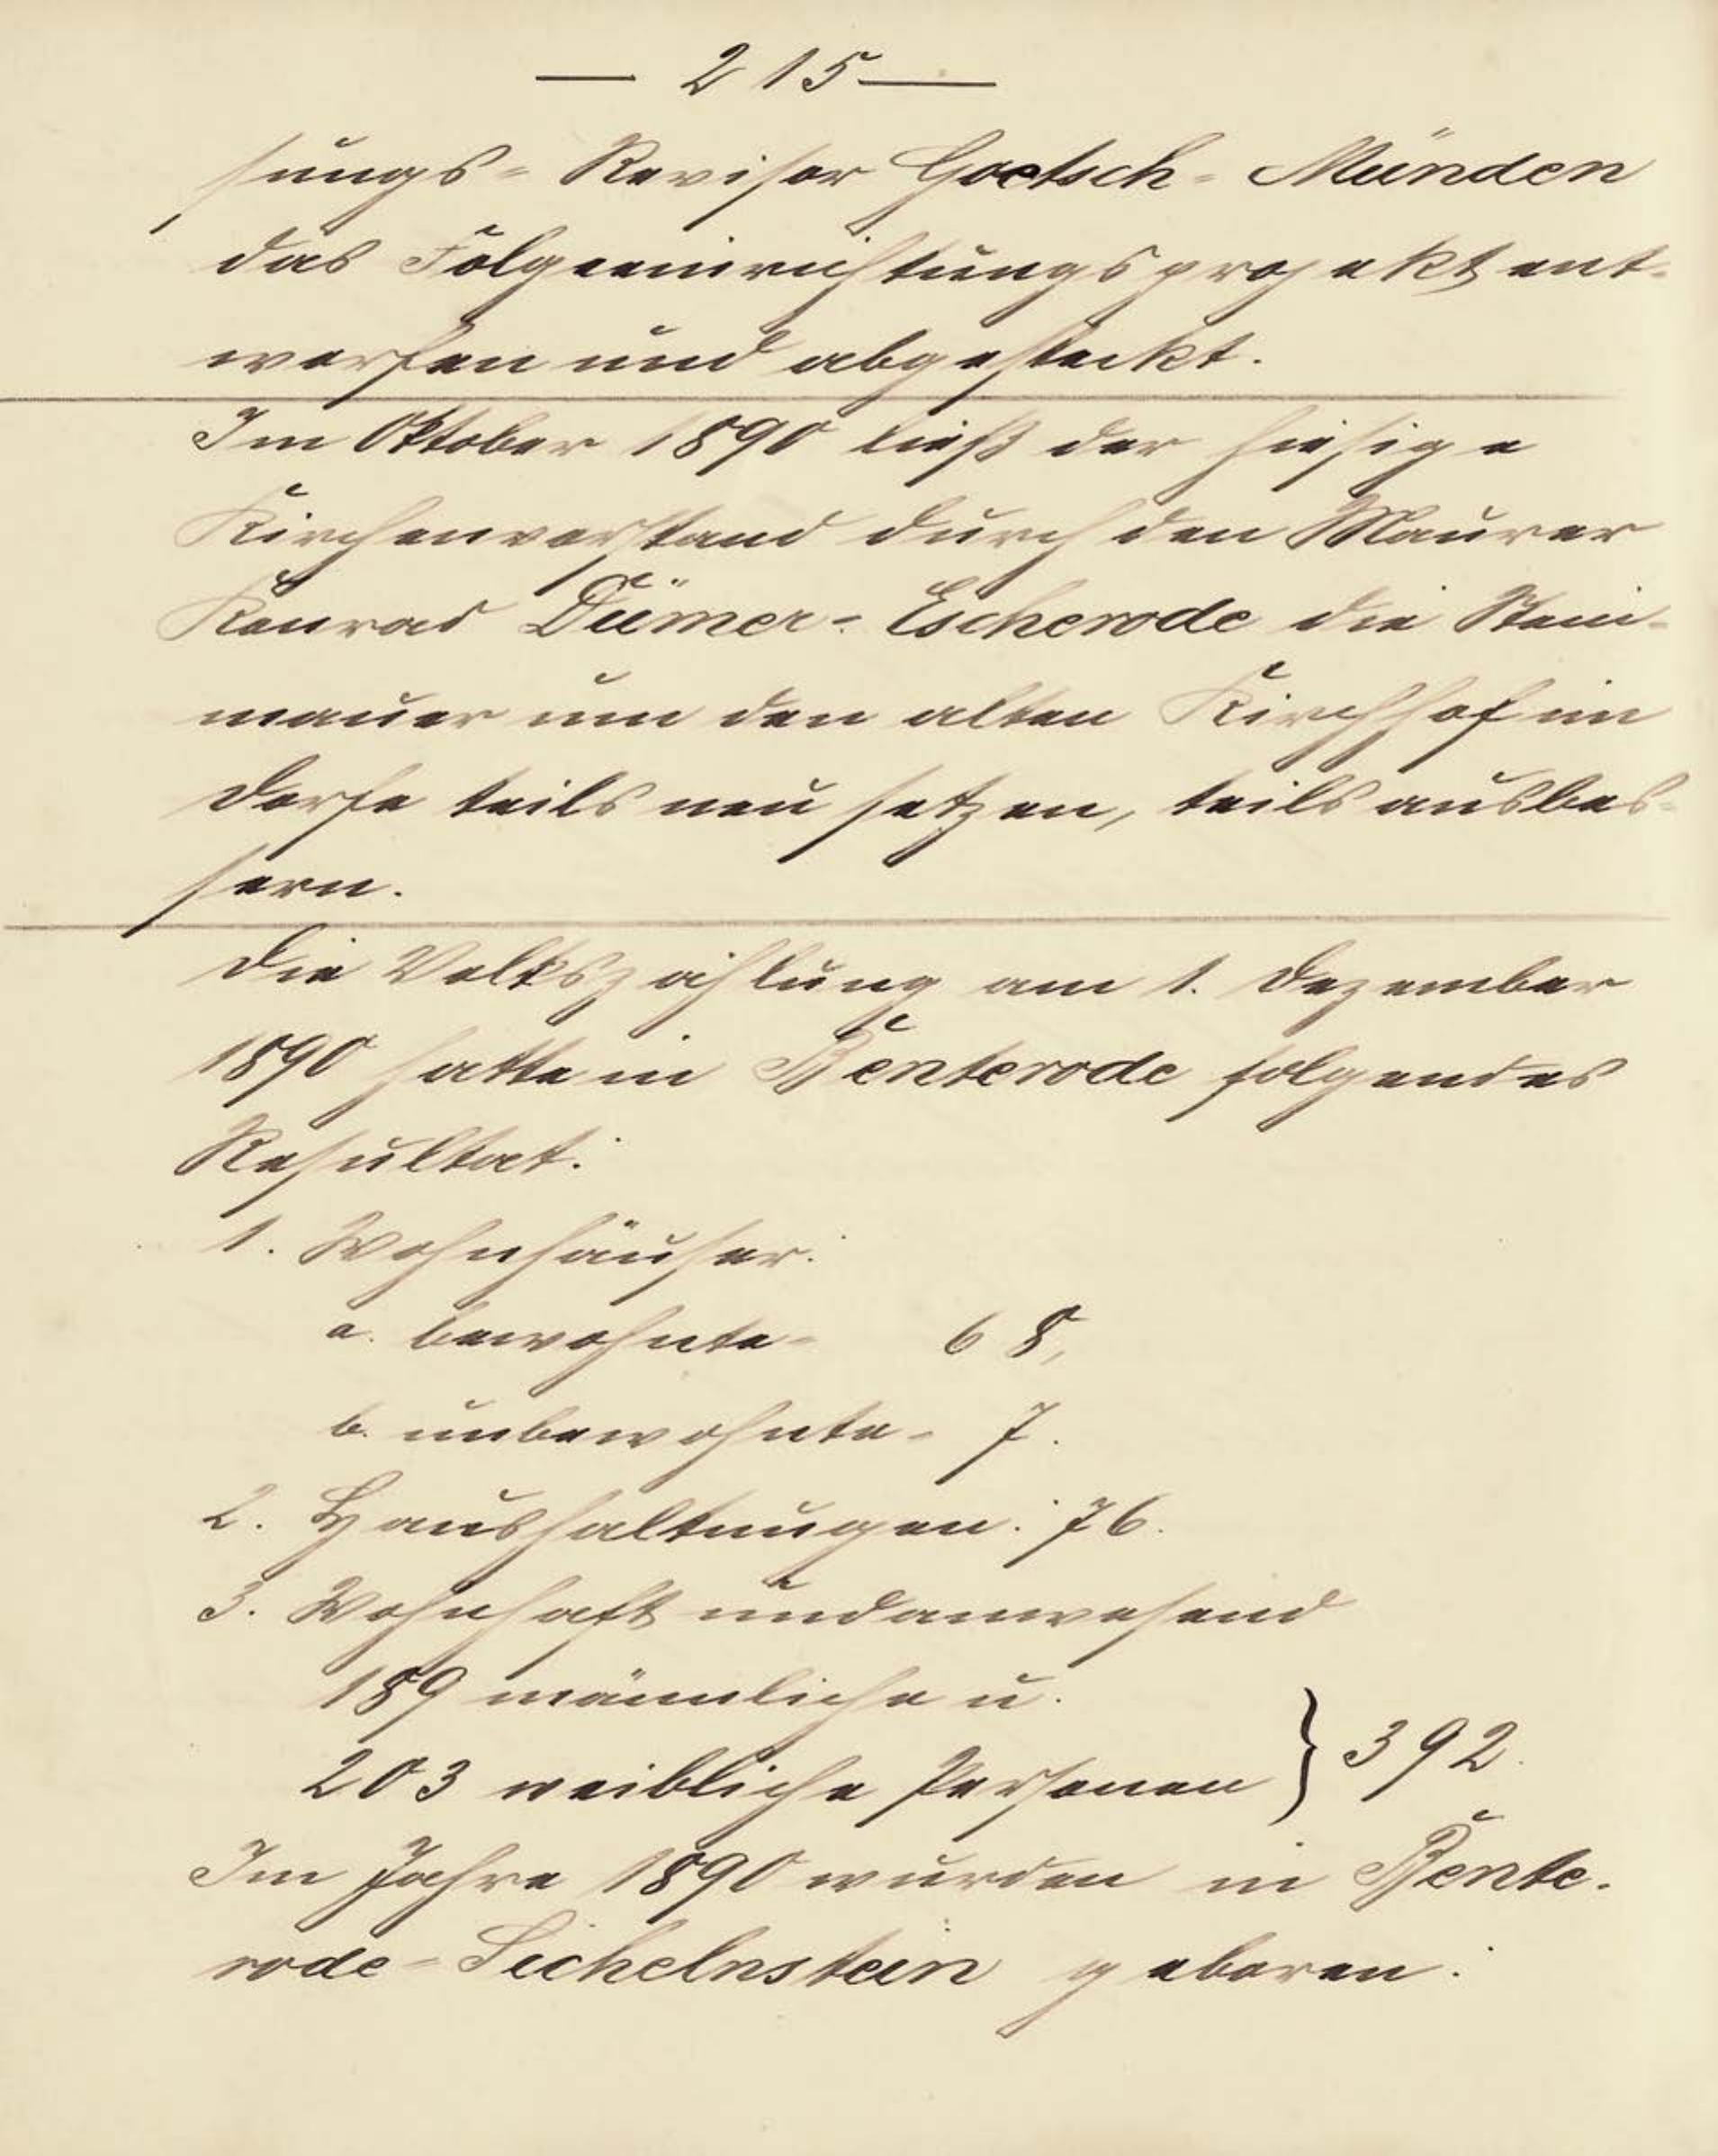 — 215 —
sungs-Revisor Goetsch-Münden
das Folgeeinrichtungsprojekt ent-
worfen und abgesteckt.
Im Oktober 1890 ließ der hiesige
Kirchenvorstand durch den Maurer
Konrad Dümer-Escherode die Stein-
mauer um den alten Kirchhof im
Dorfe teils neu setzen, teils ausbes-
sern.
Die Volkszählung am 1. Dezember
1890 hatte in Benterode folgendes
Resultat:
1. Wohnhäuser:
a. bewohnte- 68,
b. unbewohnte- 7.
2. Haushaltungen: 76.
3. Wohnhaft und anwesend
189 männliche u.
203 weibliche Personen } 392.
Im Jahre 1890 wurden in Bente-
rode-Sichelnstein geboren: